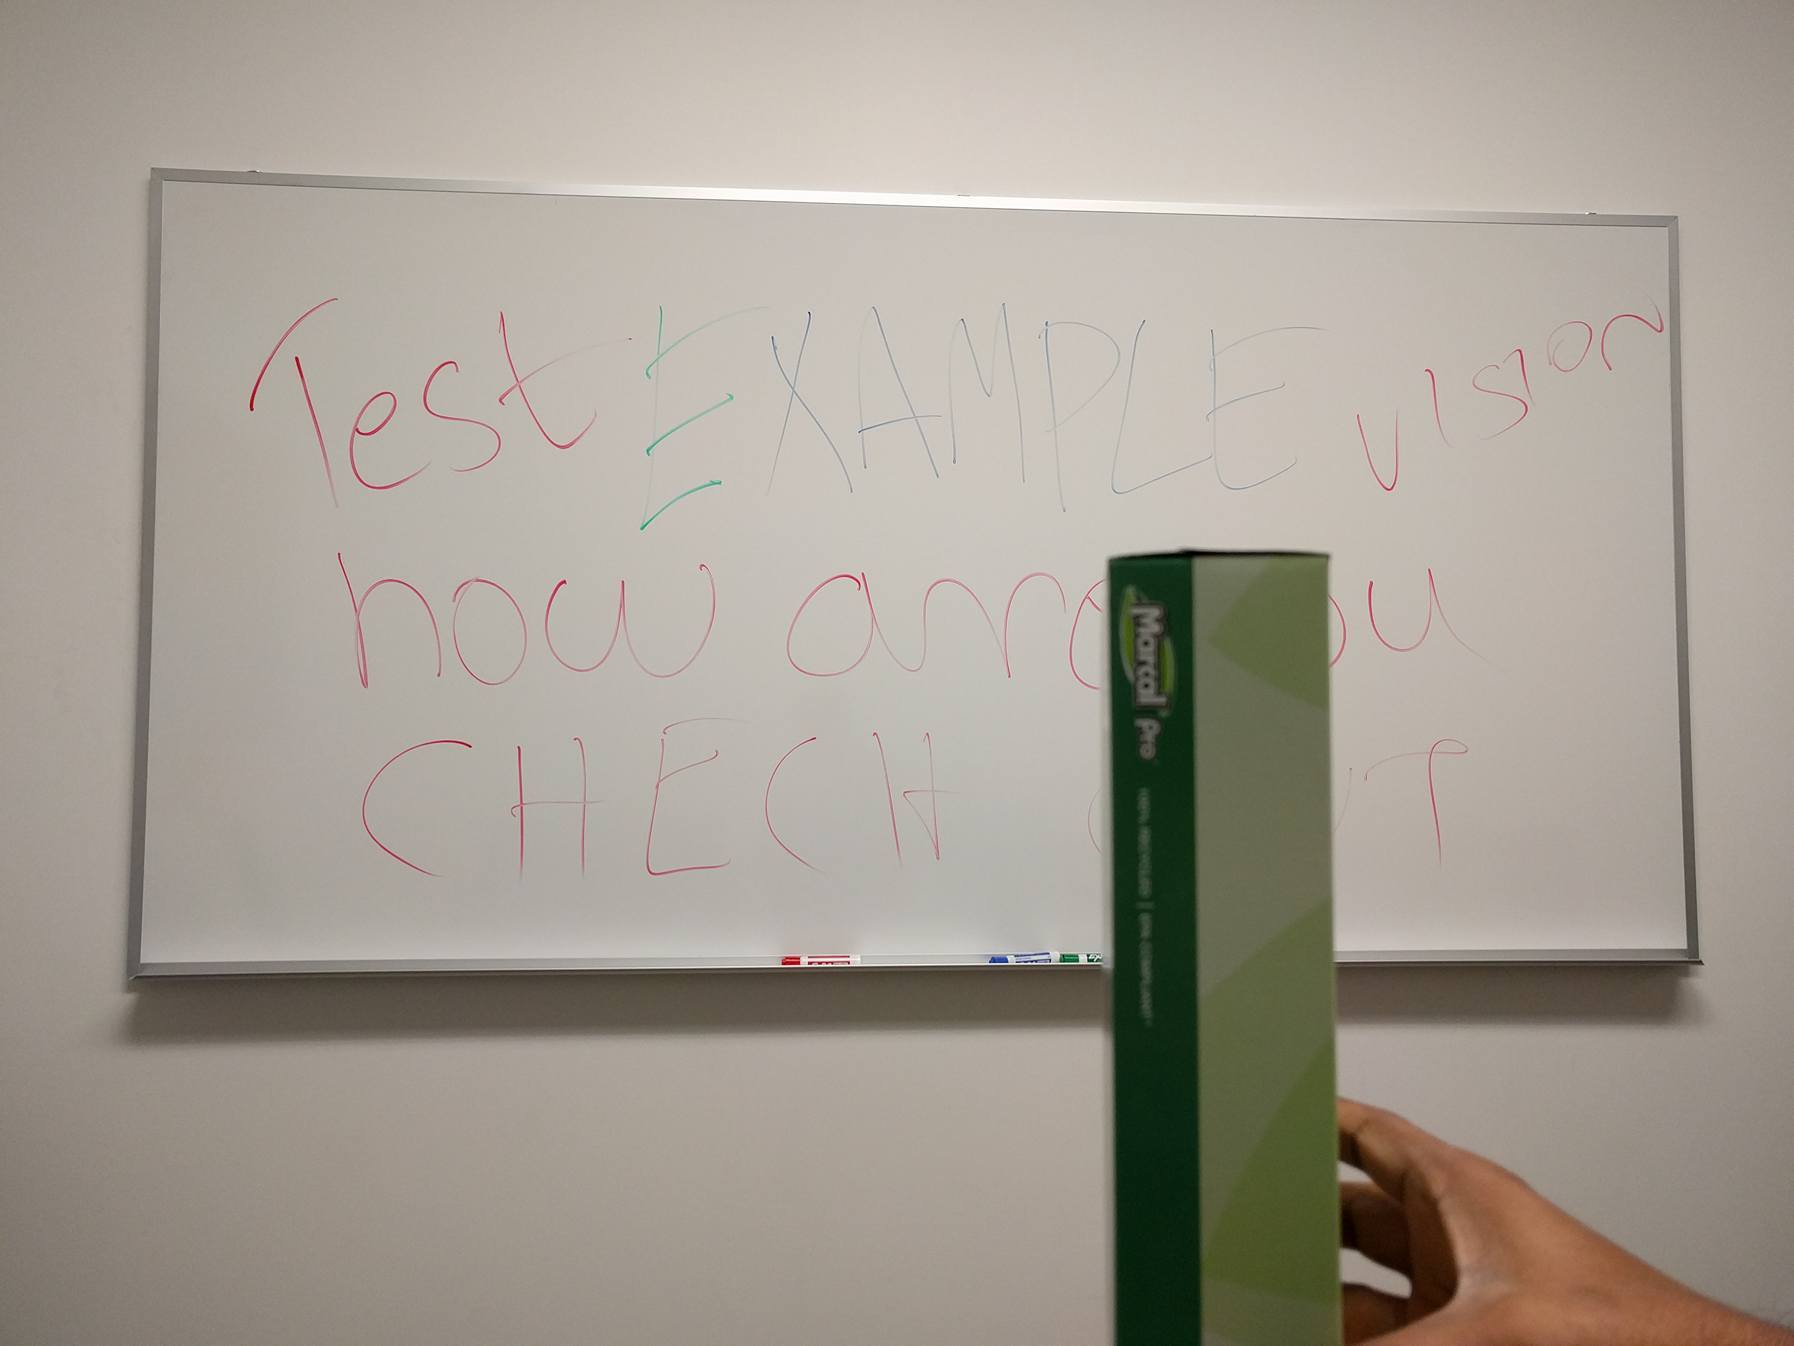 Test EXAMPLE vision
how are ou
CHECH UT
Marcal Pro
100% RECYCLED | EPA COMPLIANT